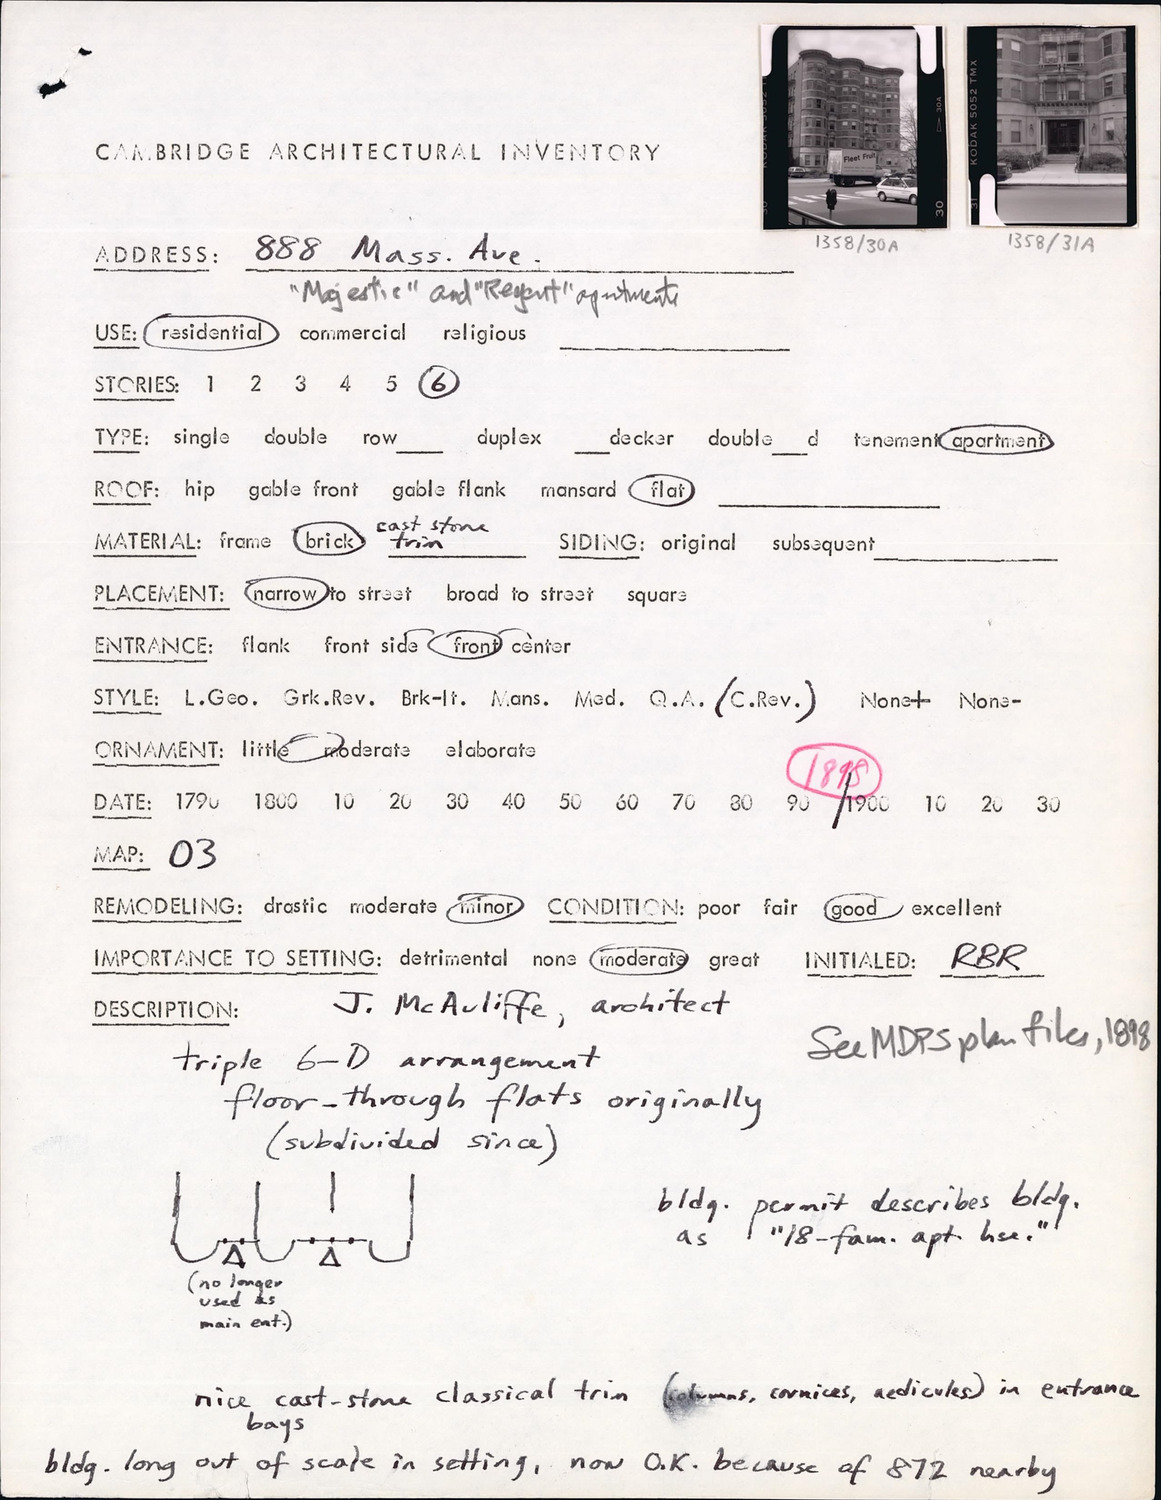 KODAK 5052 TMX
Fleet Fruit
30A
30
31
1358/30A
1358/31A
CAMBRIDGE ARCHITECTURAL INVENTORY
ADDRESS: 888 Mass. Ave.
"Majestic" and "Regent" apartments
USE: residential commercial religious
STORIES: 1 2 3 4 5 6
TYPE: single double row___ duplex ___decker double___d tenement apartment
ROOF: hip gable front gable flank mansard flat
MATERIAL: frame brick cast stone trim SIDING: original subsequent
PLACEMENT: narrow to street broad to street square
ENTRANCE: flank front side front center
STYLE: L.Geo. Grk.Rev. Brk-It. Mans. Med. Q.A. (C.Rev.) None+ None-
ORNAMENT: little moderate elaborate
1898
DATE: 1790 1800 10 20 30 40 50 60 70 80 90 1900 10 20 30
MAP: 03
REMODELING: drastic moderate minor CONDITION: poor fair good excellent
IMPORTANCE TO SETTING: detrimental none moderate great INITIALED: RBR
DESCRIPTION: J. McAuliffe, architect
See MDPS plan files, 1898
triple 6-D arrangement
floor-through flats originally
(subdivided since)
bldg. permit describes bldg.
as "18-fam. apt. hse."
(no longer
used as
main ent.)
nice cast-stone classical trim (columns, cornices, aedicules) in entrance
bays
bldg. long out of scale in setting, now O.K. because of 872 nearby